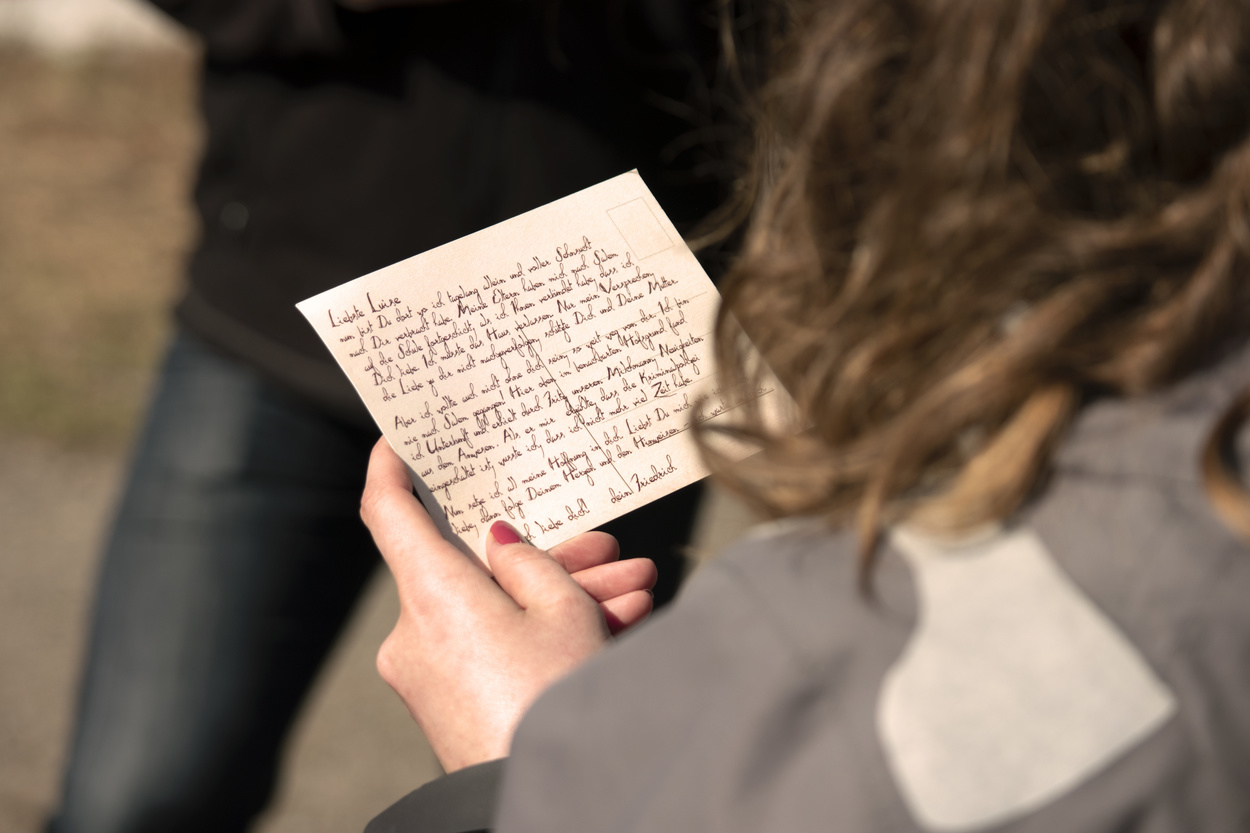 Liebste Luise
nun bist Du dort wo ich tagelang allein und voller Sehnsucht
nach Dir verbracht habe. Meine Eltern haben mich nach Salem
auf die Schule fortgeschickt, als ich Ihnen verkündet habe, dass ich
Dich liebe. Ich musste das Haus verlassen. Nur mein Versprechen
die Liebe zu dir nicht weiter schützte Dich und Deine Mutter
Aber ich wollte und nicht ohne dich sein, so weit weg von dir. Ich bin
nie nach Salem gegangen! Hier oben im benachbarten Hofgrund fand
ich Unterkunft und erhielt durch Fritz, unseren Mitdiener Neuigkeiten
aus dem Anwesen. Als er mir sagte dass die Kriminalpolizei
eingeschaltet ist, wusste ich, dass ich nicht mehr viel Zeit habe
Nun setze ich all meine Hoffnung in dich. Liebst Du mich
Liebe, dann folge Deinem Herzen und den Hinweisen
ich liebe dich! dein Friedrich